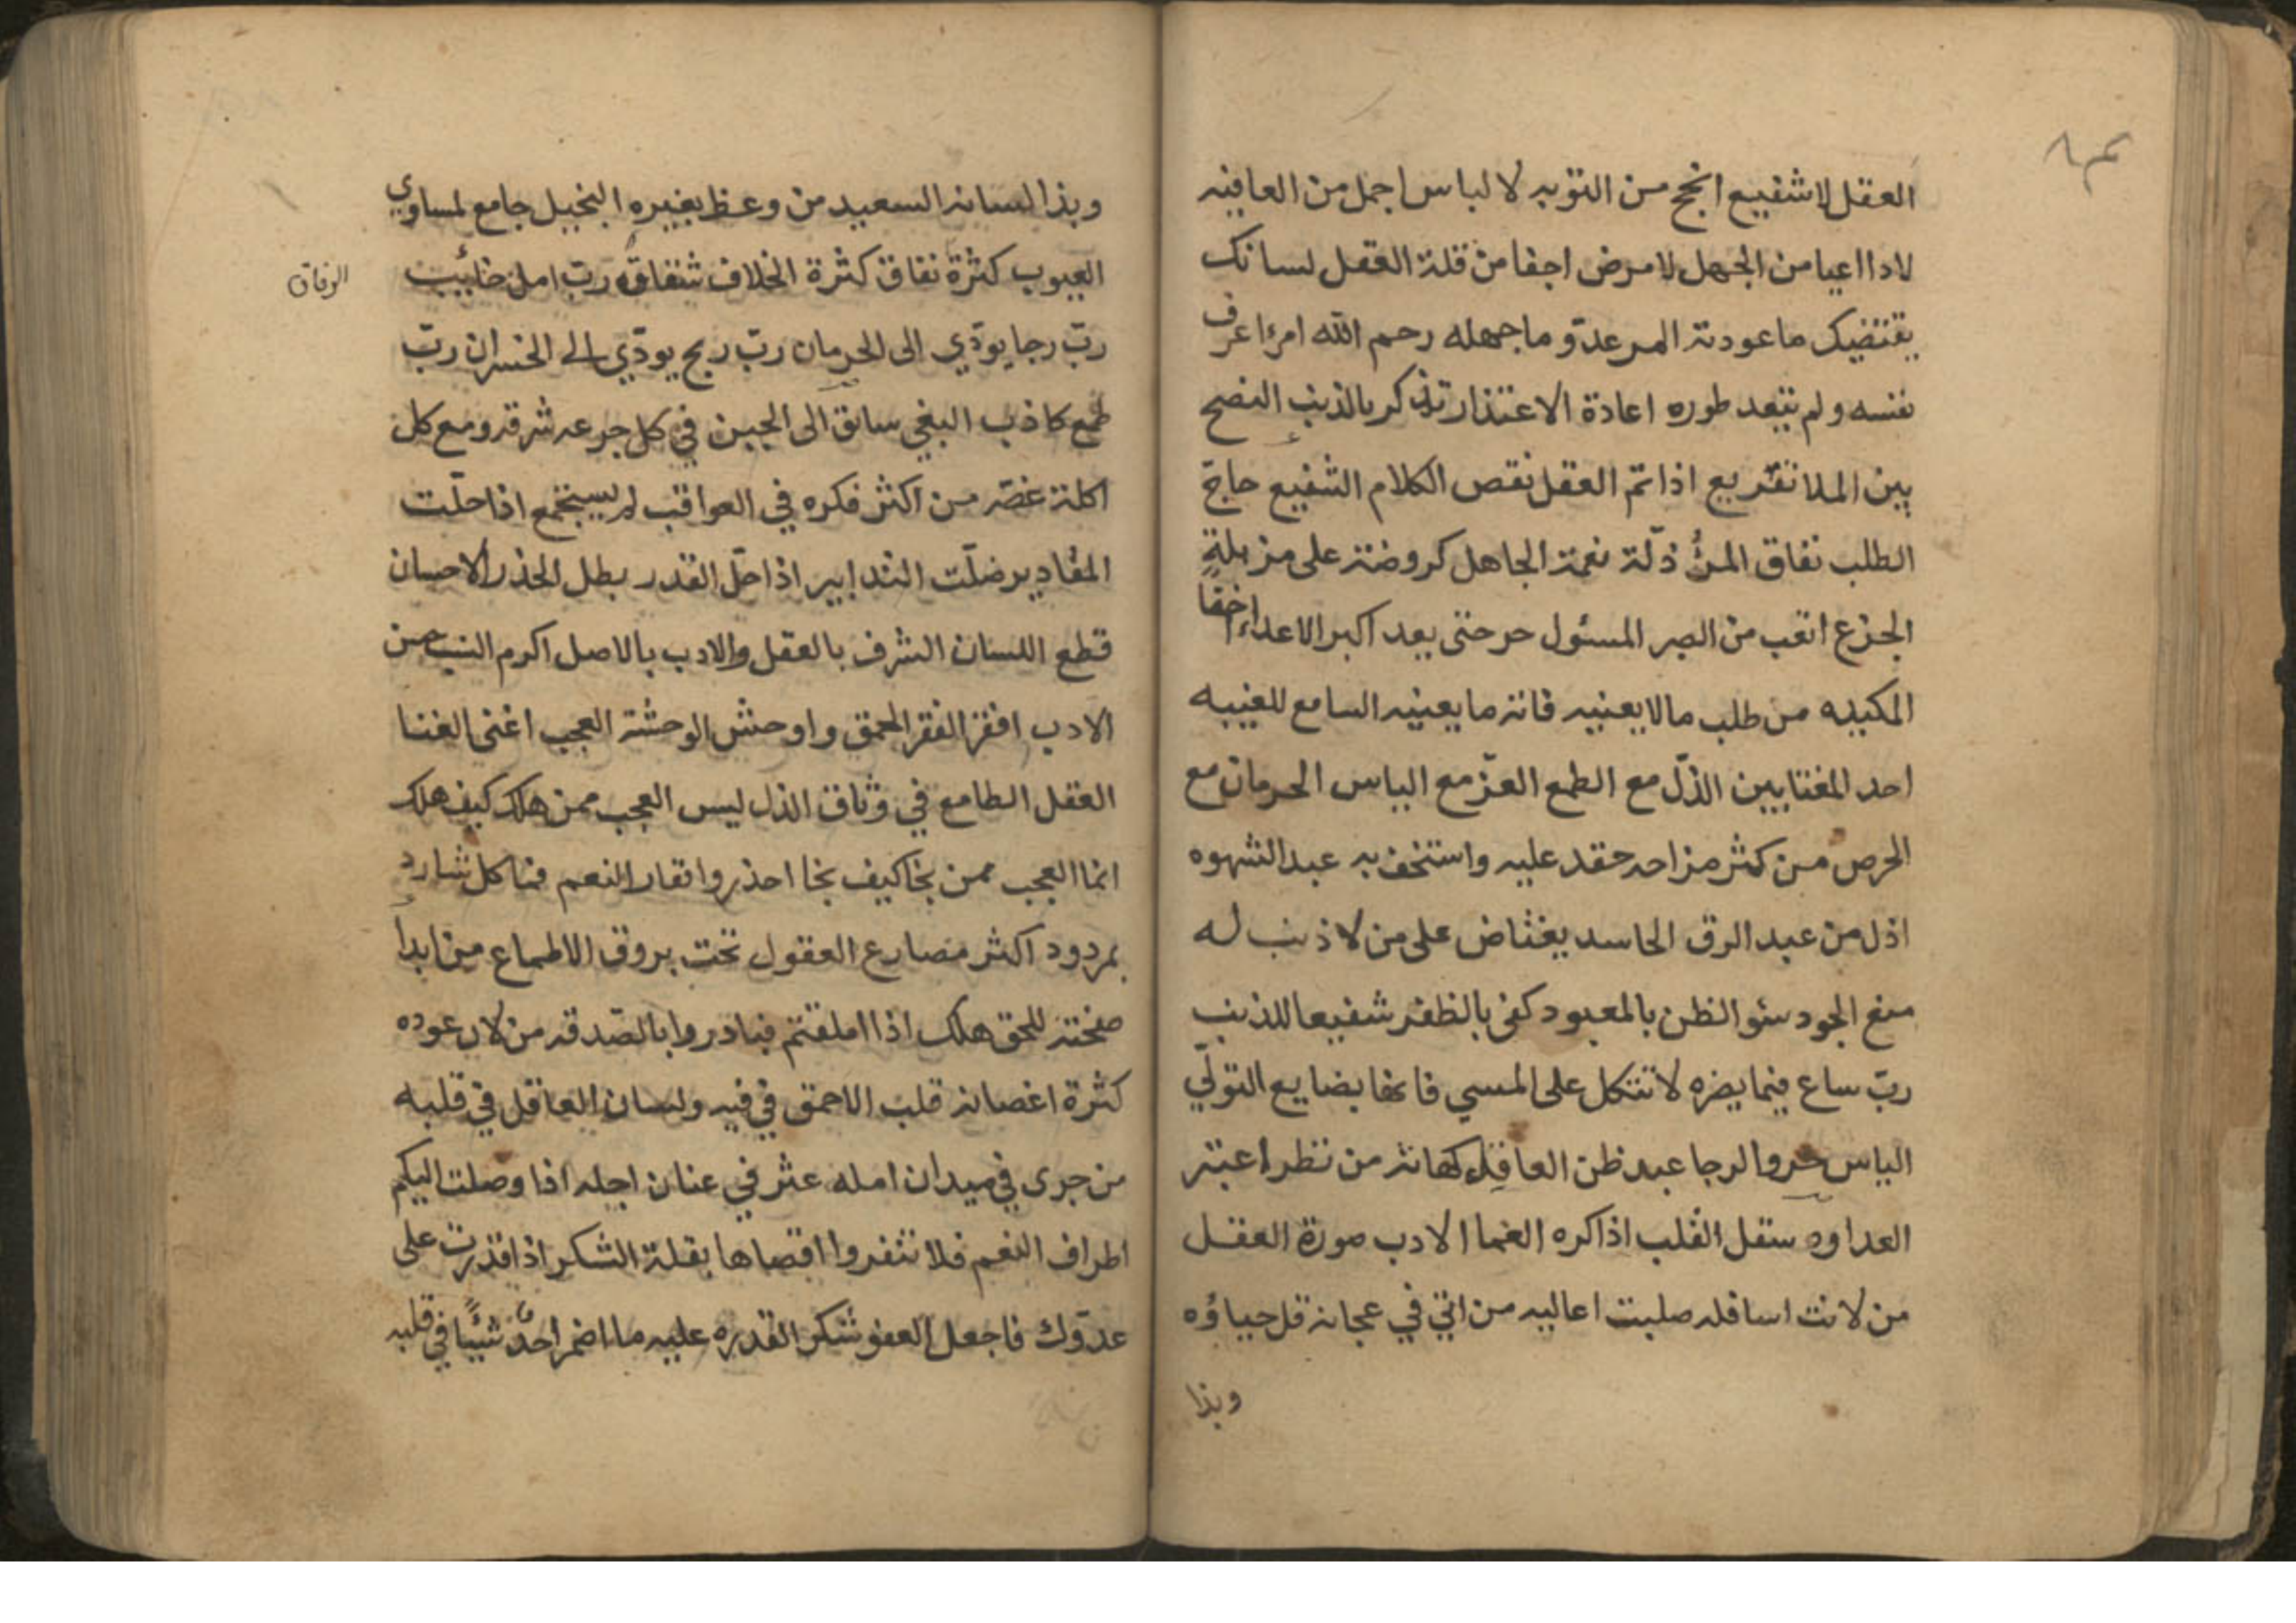 العقل لا شفيع انجح من التوبه لا لباس اجمل من العافيه
لا داا اعيا من الجهل لا مرض اجفا من قلة العقل لسانك
يقتضيك ما عودته المر عدوّ ما جهله رحم الله امرءا عرف
نفسه ولم يتعد طوره اعادة الاعتذار تذكر بالذنب النصح
بين الملا تقريع اذا تمّ العقل نقص الكلام الشفيع جناح
الطلب نفاق المرُ ذلّة نعمة الجاهل كروضة على مزبلةٍ
الجزع اتعب من الصبر المسئول حر حتى يعد اكبر الاعداء اخفا
المكيده من طلب ما لا يعنيه فاته ما يعنيه السامع للغيبه
احد المغتابين الذلّ مع الطمع العزّ مع الياس الحرمان مع
الحرص من كثر مزاحه حقد عليه واستخف به عبد الشهوه
اذل من عبد الرق الحاسد يغتاض على من لا ذنب له
منع الجود سئو الظن بالمعبود كفى بالظفر شفيعا للذنب
ربّ ساع فيما يضره لا تتكل على المسي فانها بضايع التولّي
الياس حر والرجا عبد ظن العاقل كهانة من نظر اعتبر
العداوه ستقل القلب اذا كره العما الادب صورة العقل
من لانت اسافله صلبت اعاليه من اتي في عجانه قل حياؤه
وبذا
وبذا لسانه السعيد من وعظ بغيره البخيل جامع لمساوي
العيوب كثرة نفاق كثرة الخلاف شقاق رب امل خائب
الوفاق
ربّ رجا يودّي الى الحرمان ربّ ربح يودّي الى الخسران ربّ
طمع كاذب البغي سائق الى الحين في كل جرعه شرقه ومع كل
اكلة غصّه من اكثر فكره في العواقب لم يشجع اذا حلّت
المقادير ضلّت التدابير اذا حلّ القدر بطل الحذر الاحسان
قطع اللسان الشرف بالعقل والادب بالاصل اكرم النسب حسن
الادب افقر الفقر الحمق واوحش الوحشة العجب اغنى الغنا
العقل الطامع في وثاق الذل ليس العجب ممن هلك كيف هلك
انما العجب ممن نجا كيف نجا احذروا نفار النعم فما كل شارد
بمردود اكثر مصارع العقول تحت بروق الاطماع من ابدا
صفحته للحق هلك اذا املقتم فبادروا بالصّدقه من لان عوده
كثرة اغصانه قلب الاحمق في فيه ولسان العاقل في قلبه
من جرى في ميدان امله عثر في عنان اجله اذا وصلت اليكم
اطراف النعم فلا تنفروا اقصاها بقلة الشكر اذا قدرت على
عدوّك فاجعل العفو شكر القدره عليه ما اضمر احدٌ شيئًا في قلبه